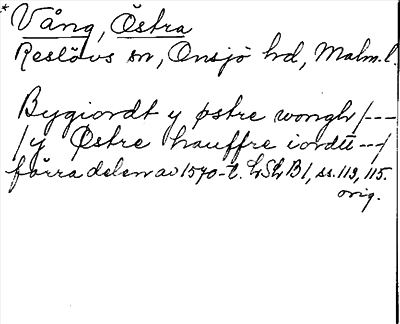 * Vång, Östra
Reslövs sn, Onsjö hd, Malm.l.
Bygiordt y østre wongh /---
/y Østre hauffre iordtt ---/
förra delen av 1570-t. LSLB1, ss. 113, 115.
orig.